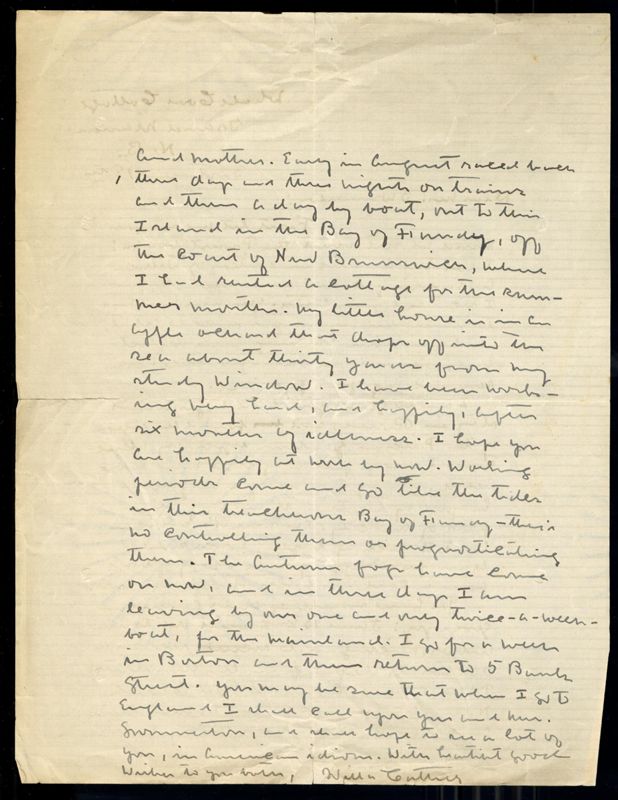 Whale Cove Cottage
Grand Manan
N. B.
and mother. Early in August raced back
three days and three nights on trains
and then a day by boat, out to this
Island in the Bay of Fundy, off
the Coast of New Brunswick, where
I had rented a cottage for the sum-
mer months. My little house is in an
apple orchard that drops off into the
sea about thirty yards from my
study window. I have been work-
ing very hard, and happily, after
six months of idleness. I hope you
are happily at work by now. Working
periods come and go like the tides
in this treacherous Bay of Fundy,—there's
no controlling them or prognosticating
them. The Autumn fogs have come
on now, and in three days I am
leaving by our one and only twice-a-week-
boat, for the mainland. I go for a week
in Boston and then return to 5 Bank
Street. You may be sure that when I go to
England I shall call upon you and Mrs.
Swinnerton, and shall hope to see a lot of
you, in American idiom. With heartiest good
wishes to you both, Willa Cather